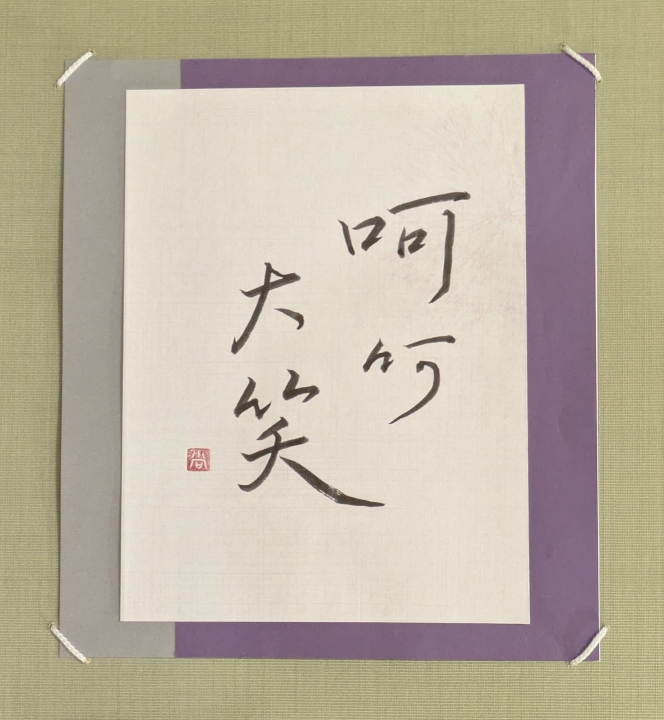 呵呵
大笑
尚